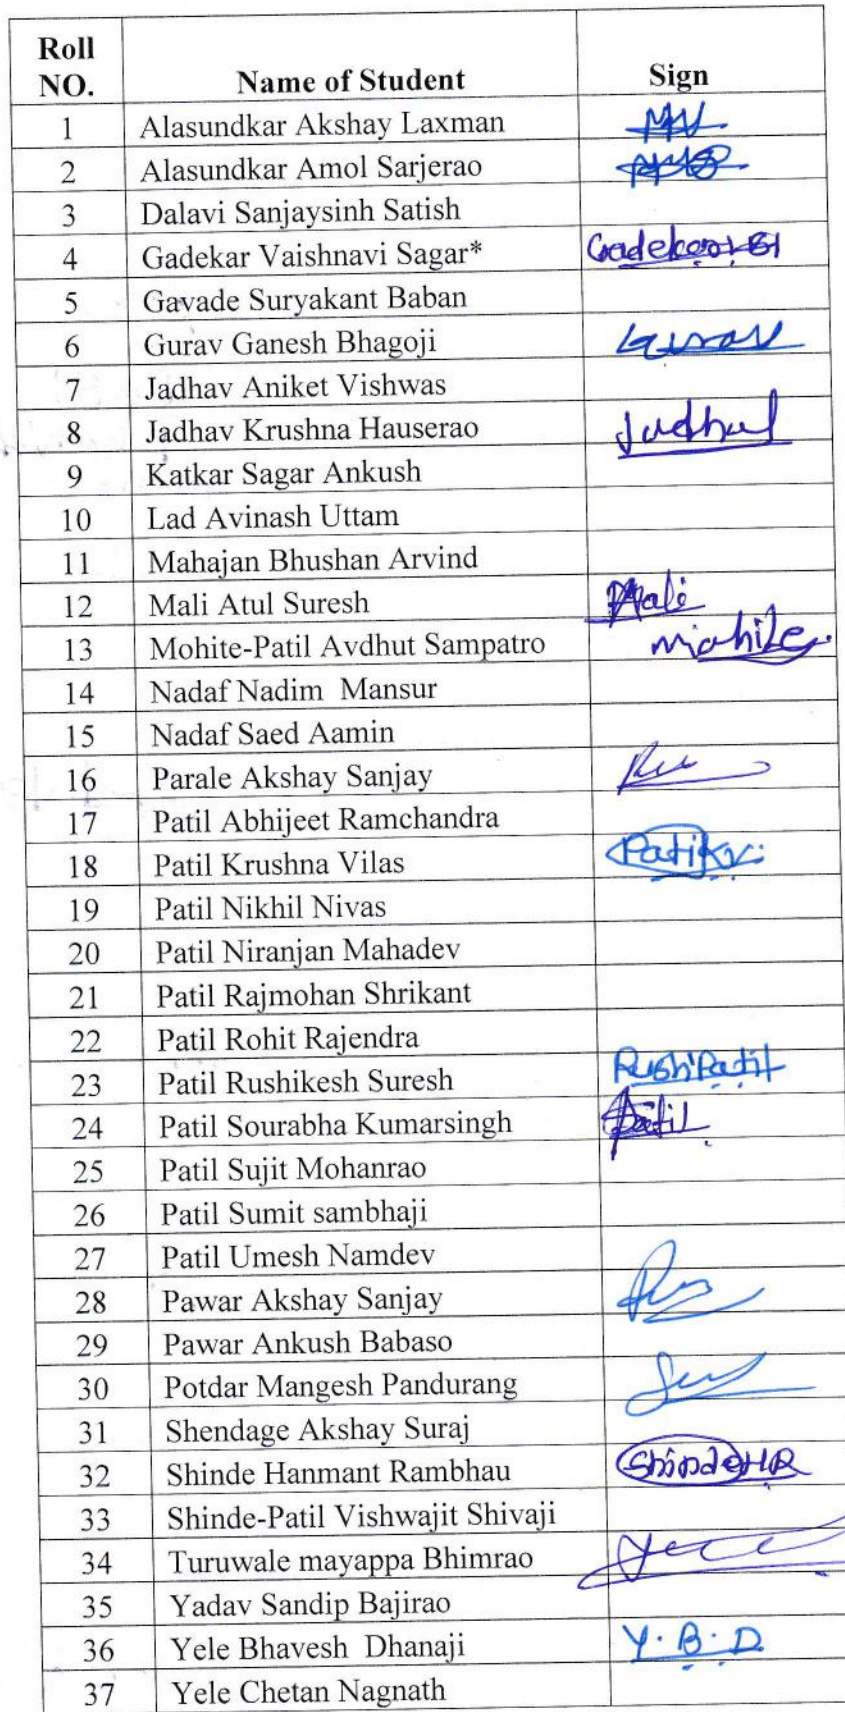 Roll NO. Name of Student Sign
1 Alasundkar Akshay Laxman
2 Alasundkar Amol Sarjerao
3 Dalavi Sanjaysinh Satish
4 Gadekar Vaishnavi Sagar*
5 Gavade Suryakant Baban
6 Gurav Ganesh Bhagoji Gurav
7 Jadhav Aniket Vishwas
8 Jadhav Krushna Hauserao Jadhav
9 Katkar Sagar Ankush
10 Lad Avinash Uttam
11 Mahajan Bhushan Arvind
12 Mali Atul Suresh Mali
13 Mohite-Patil Avdhut Sampatro Mohite
14 Nadaf Nadim Mansur
15 Nadaf Saed Aamin
16 Parale Akshay Sanjay
17 Patil Abhijeet Ramchandra
18 Patil Krushna Vilas PatilKV.
19 Patil Nikhil Nivas
20 Patil Niranjan Mahadev
21 Patil Rajmohan Shrikant
22 Patil Rohit Rajendra
23 Patil Rushikesh Suresh RushiPatil
24 Patil Sourabha Kumarsingh Patil
25 Patil Sujit Mohanrao
26 Patil Sumit sambhaji
27 Patil Umesh Namdev
28 Pawar Akshay Sanjay
29 Pawar Ankush Babaso
30 Potdar Mangesh Pandurang
31 Shendage Akshay Suraj
32 Shinde Hanmant Rambhau ShindeHR
33 Shinde-Patil Vishwajit Shivaji
34 Turuwale mayappa Bhimrao
35 Yadav Sandip Bajirao
36 Yele Bhavesh Dhanaji Y.B.D.
37 Yele Chetan Nagnath